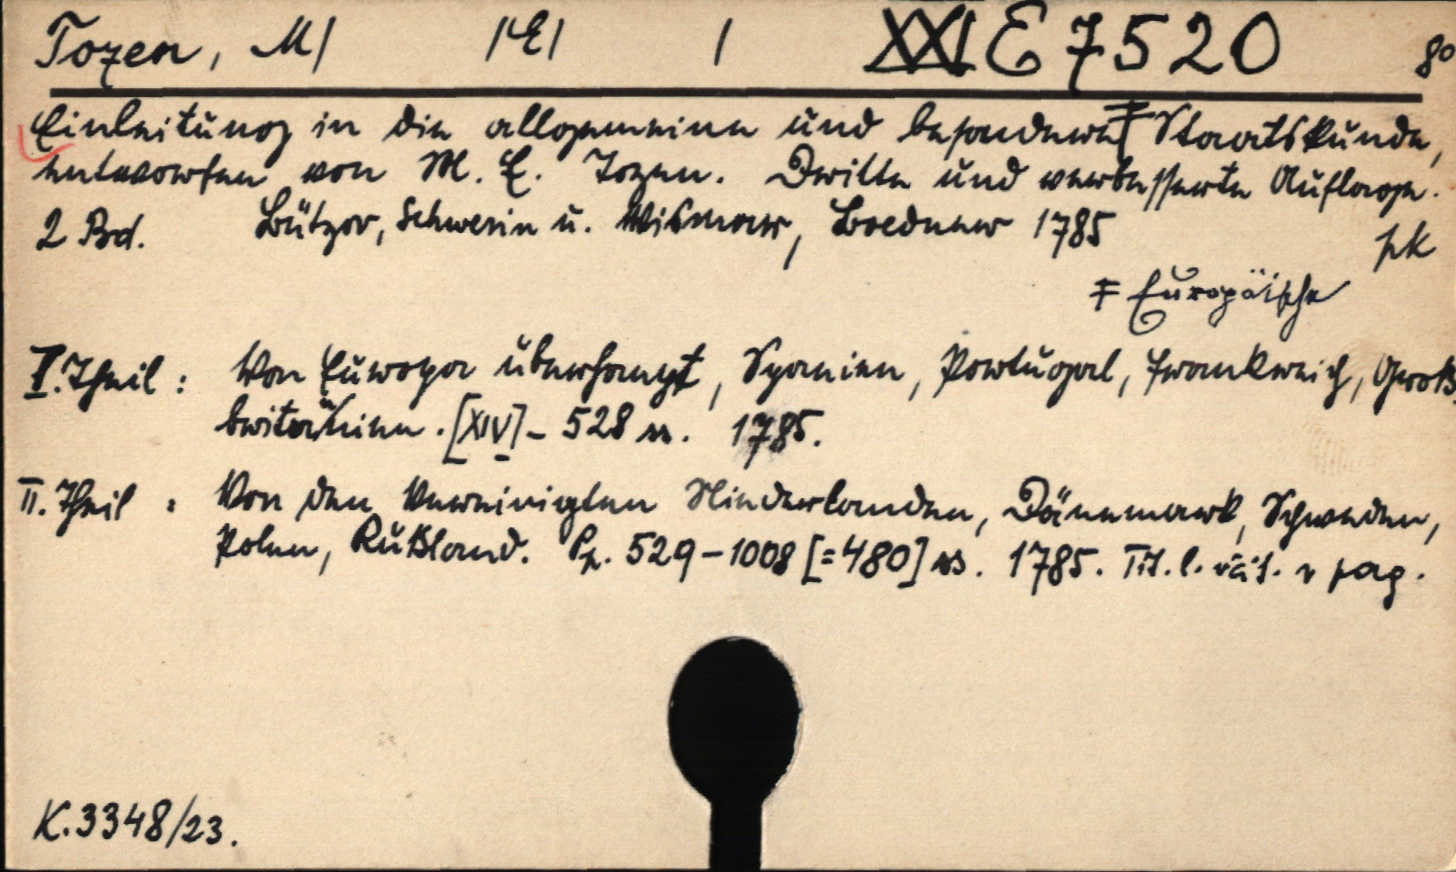 Tozen, M| |E| | XXI E 7520 80
Einleitung in die allgemeine und besondere ŧ Staatskunde,
entworfen von M. E. Tozen. Dritte und verbesserte Auflage.
2 Bd. Bützov, Schwerin u. Wismar, Boedner 1785
pk
ŧ Europäische
I. Theil: Von Europa überhaupt, Spanien, Portugal, Frankreich, Groß-
britannien. [XIV] - 528 ss. 1785.
II. Theil: Von den Vereinigten Niederlanden, Dänemark, Schweden,
Polen, Rußland. Pp. 529-1008 [=480] ss. 1785. Tit. l. včít. v pag.
K.3348/23.